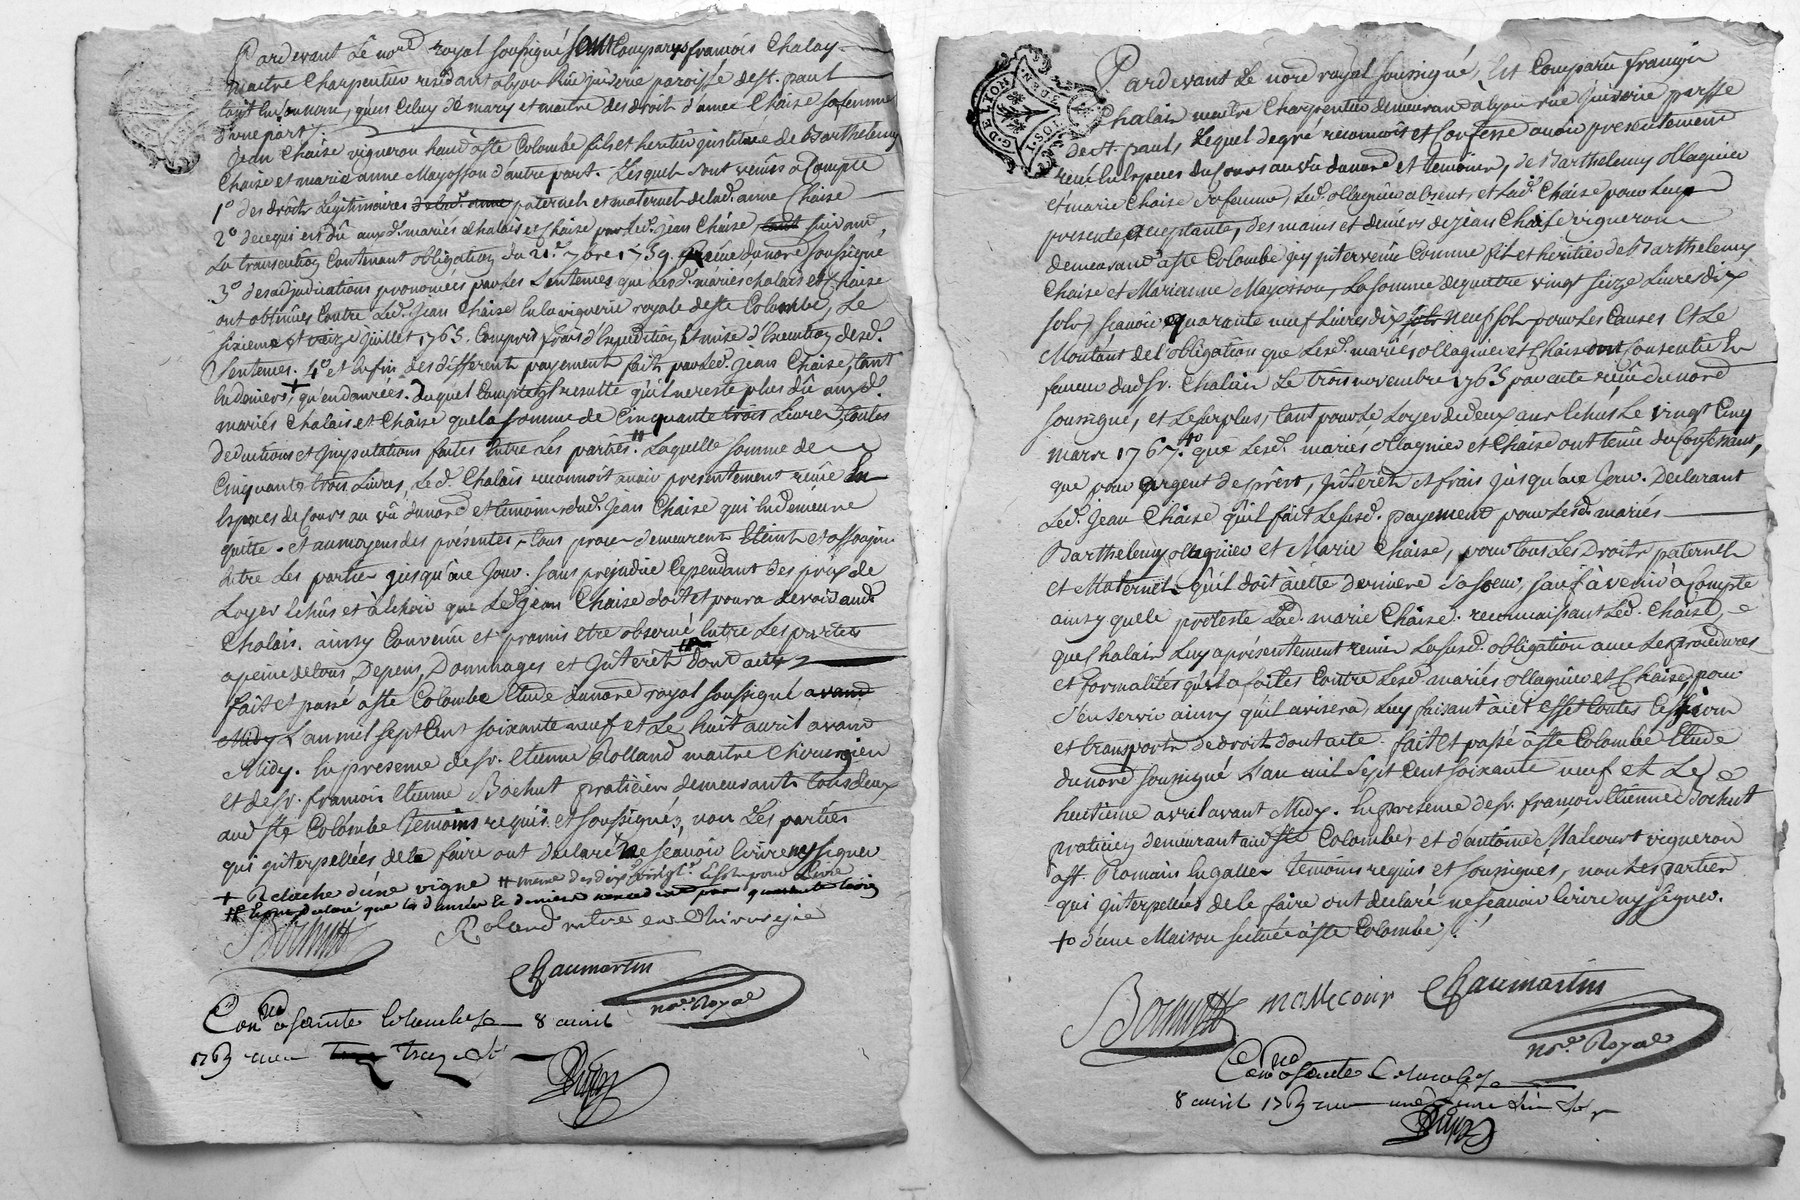 Pardevant Le no.re royal soussigné sont Comparus francois Chalay
maitre Charpentier residant alyon Rüe juiverie paroisse de st. paul
tant En son nom, que en Celuy de mary et maitre des droits d'anne Chaise sa femme
d'une part;
Jean Chaise vigneron hand. a ste Colombe fils et heritier institué de Barthelemy
Chaise et marie anne Mayosson d'autre part. Lesquels sont venûs a Compte
1.o des droits Legitimaires paternels et maternels de lad. anne Chaise
2.o de ce qui est dû auxd. mariés Chalais et Chaise par Led. jean Chaise suivant
La transaction Contenant obligation du 21.e 7bre 1759. Reçüe du no.re soussigné
3.o des adjudications prononcées par Les Sentences que Lesd. mariés chalais et Chaise
ont obtenûes Contre Led. Jean Chaise En la viguerie royale de ste Colombe, Le
sixieme et treize Juillet 1763. Compris frais d'Expedition et mise d'Execution desd.
Sentences. 4.o et Enfin des differents payements faits par Led. Jean Chaise, tant
En deniers + qu'en danrées. Duquel Compte il resulte qu'il ne reste plus dû auxd.
mariés Chalais et Chaise que la somme de Cinquante trois Livres, toutes
deductions et jmputations faites Entre Les parties. Laquelle somme de
Cinquante trois Livres, Led. Chalais reconnoit avoir presentement reçüe En
Especes de Cours au vû du no.re et temoins dud. Jean Chaise qui En demeure
quitte. et au moyen des présentes, tous proces demeurent Eteints et assoupis
Entre Les parties jusqu'a Ce Jour. sans prejudice Cependant des prix de
Loyer Echûs et à Echoir que Led. jean Chaise doit et poura devoir aud.
Chalais. ainsy Convenû et promis etre observé Entre Les parties
a peine de tous Depens, Dommages et Jnterets dont acte
fait et passé a ste Colombe Etude du no.re royal soussigné avant
Midy L'an mil sept Cent soixante neuf et Le huit avril avant
Midy. En presence de sr. Etienne Rolland maitre Chirurgien
et de sr. francois Etienne Bochut praticien demeurants tous deux
aud. ste Colombe temoins requis et soussignés, non Les parties
qui jnterpellées de le faire ont declaré ne sçavoir Ecrire ny signer
+ Relache d'une vigne
Bochutt Roland maitre en Chirurgie
Chaumartin
no.re Royal
Con.lé a Sainte Colombe Le 8 avril
1769 reçu treize s.
Pardevant Le no.re royal soussigné, Est Comparû francois
Chalais maitre Charpentier demeurant à Lyon rüe Juiverie parsse
de st. paul, Lequel de gré reconnoit et Confesse avoir presentement
reçu En Especes du Cours au vû du no.re et temoins, de Barthelemy ollagnier
et marie Chaise sa femme, Led. ollagnier absent, et Lad. Chaise pour Luy
presente et aceptante, des mains et deniers de jean Chaise vigneron
demeurant a ste Colombe jcy jntervenû Comme fils et heritier de Barthelemy
Chaise et Marianne Mayosson, La somme de quatre vingt seize Livres dix
sols, sçavoir quarante neuf Livres dix neuf sols pour Les Causes Et Le
Montant de l'obligation que Lesd. mariés ollagnier et Chaise ont Consentie En
faveur dud. sr. Chalais Le trois novembre 1765 par acte reçû du no.re
soussigné, et Le surplus, tant pour Le Loyer de deux ans Echus Le vingt Cinq
mars 1767. +o que Lesd. mariés ollagnier et Chaise ont tenûe du Confessant,
que pour argent de prêt, jnterêts et frais jusqu'a Ce Jour. Declarant
Led. Jean Chaise qu'il fait Le susd. payement pour Lesd. mariés
Barthelemy ollagnier et Marie Chaise, pour tous Les Droits paternels
et Maternels qu'il doit à Cette derniere sa soeur, sauf à venir à Compte
ainsy quelle proteste Lad. marie Chaise. reconnaissant Led. Chaise
que Chalais Luy a présentement remis La susd. obligation avec Les procedures
et formalités qu'il a faites Contre Lesd. mariés ollagnier et Chaise, pour
s'en servir ainsy qu'il avisera, Luy faisant à Cet effet toutes Cessions
et transports de droits dont acte. fait et passé a ste Colombe Etude
du no.re soussigné L'an mil sept Cent soixante neuf et Le
huitieme avril avant Midy. En presence de sr. francois Etienne Bochut
praticien demeurant aud. ste Colombe et d'antoine Malcourt vigneron
a st. Romain En galle, temoins requis et soussignés, non Les parties
qui jnterpellées de le faire ont declaré ne sçavoir Ecrire ny signer.
+o d'une Maison scituée a ste Colombe
Bochutt mallecour Chaumartin
no.re Royal
Con.lé a Sainte Colombe Le
8 avril 1769 reçu